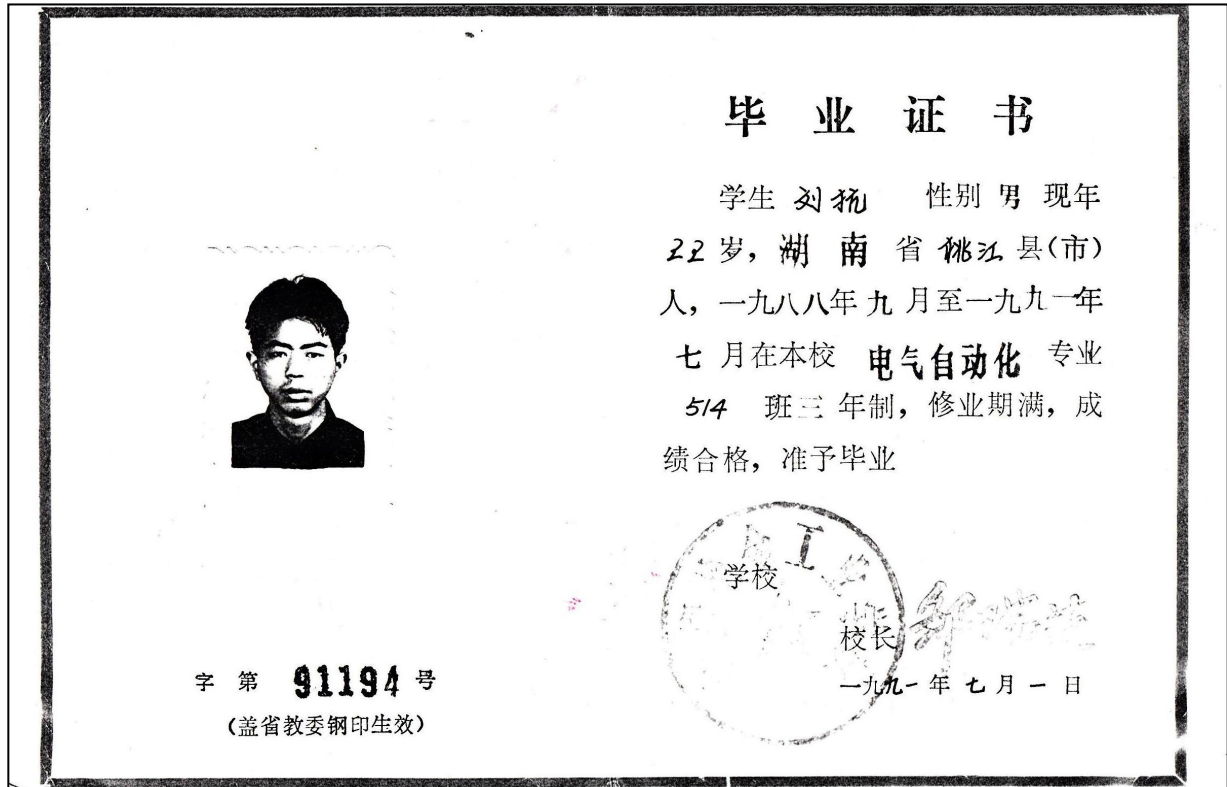 毕业证书
学生 刘抗 性别 男 现年
22岁，湖南省桃江县(市)
人，一九八八年九月至一九九一年
七月在本校 电气自动化 专业
514 班三年制，修业期满，成
绩合格，准予毕业
学校
校长
一九九一年七月一日
字第 91194 号
(盖省教委钢印生效)